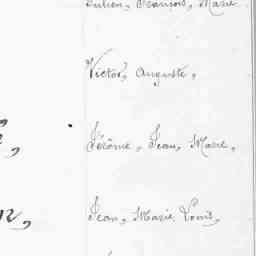 Julien, François, Marie
Victor, Auguste,
Jérôme, Jean, Marie,
Jean, Marie Louis,